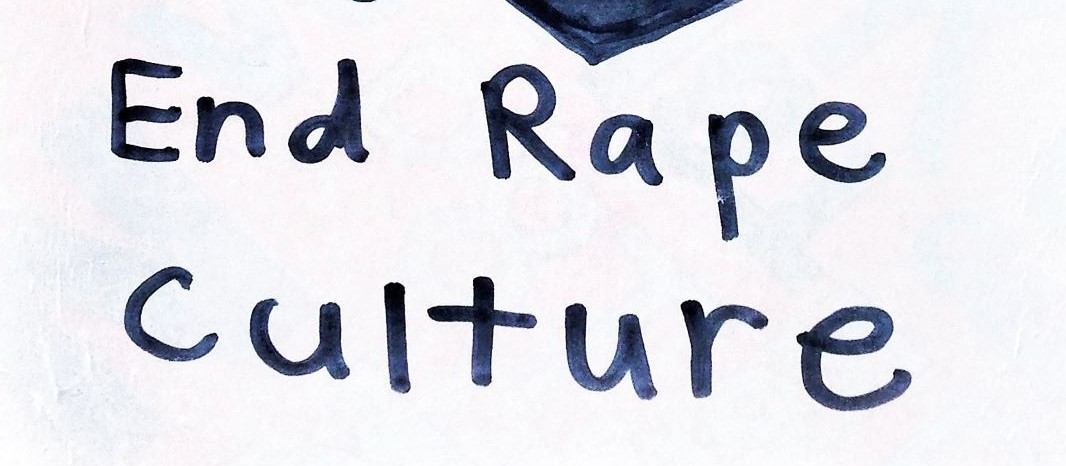 End Rape
Culture